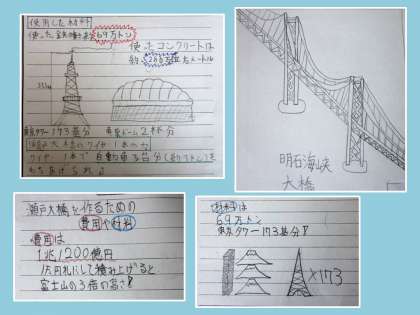 使用した材料
使った鉄鋼約69万トン
使ったコンクリートは
333m
東京タワー173基分
東京ドーム2杯分
明石海峡
大橋
瀬戸大橋を作るための
費用や材料
費用は
1兆1200億円
1万円札にして積み上げると
富士山の3倍の高さ!
材料は
69万トン
東京タワー173基分!
×173